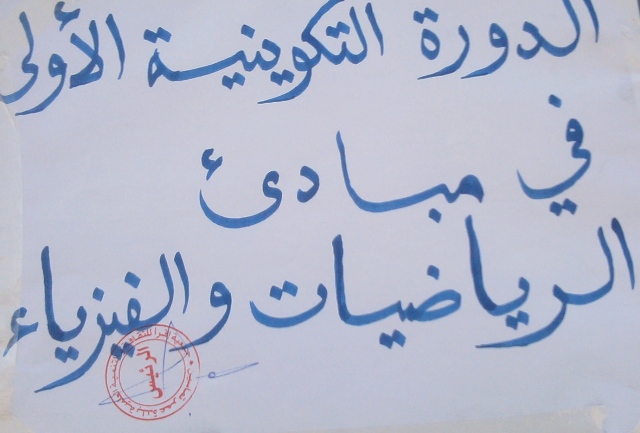 الدورة التكوينية الأولى
في
مبادئ
الرياضيات والفيزياء
الرئيس